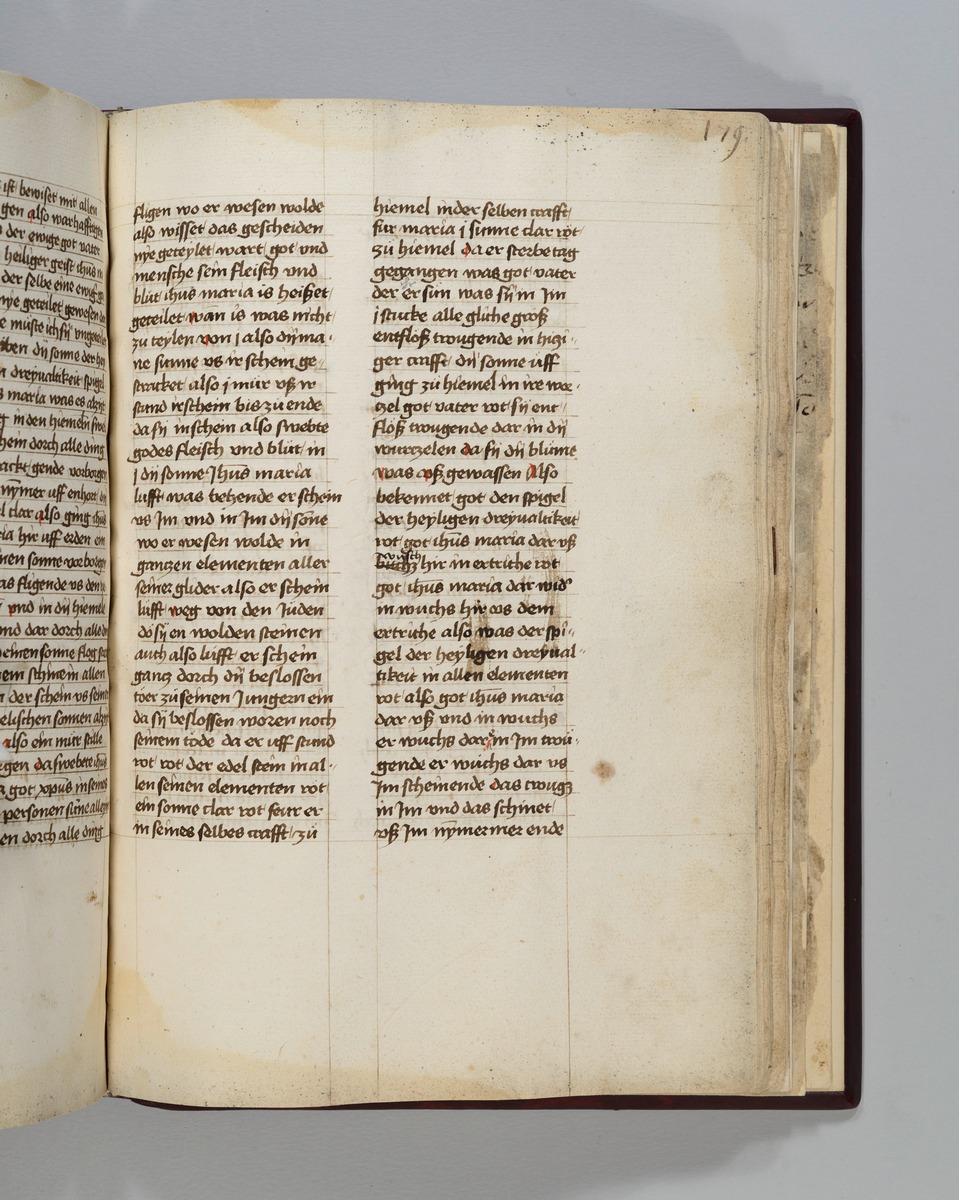 179.
ist bewiset mit allen
gen also warhafftigen
der ewige got vater
heiliger geist ihus in
der selbe eine ewig
nye geteilet gewesen
e müste ich sÿ
ben dÿ sonne der
dreyualtikeit spigel
s maria was es
in den hiemeln
hein dorch alle ding
gende vorborgen
nÿmer uff enhort
l clar also ging ihus
ia hir uff erden ein
nen sonne vorborgen
as fligende vs den
vnd in dÿ hiemele
und dar dorch alle
einen sonne flog
em schinem allen
der schein vs seine
elischen sonnen
also ein mür stille
gen da swebete ihus
got xpus in seines
personen
en dorch alle ding
fligen wo er wesen wolde
also wisset das gescheiden
nye geteylet wart got vnd
mensche sein fleisch vnd
blut ihus maria is heißet
geteilet wan is was nicht
zu teylen von j also dÿ ma-
ne sunne vs ir schein ge-
stracket also j mür vß ir
stund irschein bis zu ende
da sÿ inschein also swebte
godes fleisch vnd blüt in
j dÿ sonne Jhus maria
lufft was behende er schein
vs Im vnd in Im dÿ sone
wo er wesen wolde in
ganczen elementen aller
seiner glider also er schein
lufft weg von den Juden
do sÿ en wolden steinen
auch also lufft er schein
gancz dorch dÿ beslossen
toer zu seinen Jungern ein
da sÿ beslossen woren noch
seinem tode da er uff stund
rot rot der edel stein in al-
len seinen elementen rot
ein sonne clar rot feur er
in seines selbes crafft zu
hiemel in der selben crafft
fur maria j sunne clar rot
zu hiemel da er sterbe tag
gegangen was got vater
der er sun was sÿ in Im
j stucke alle gliche groß
entfloß trougende in hiczi-
ger crafft dÿ sonne uff
ging zu hiemel in ire wor-
zel got vater rot sÿ ent
floß trougende dar in dÿ
wurczelen da sÿ dÿ blume
was vß gewassen Also
bekennet got den spigel
der heyligen dreyualtikeit
rot got ihus maria dar vß
wusch
hir in ertriche rot
got ihus maria dar wider
in wuchs hir vs dem
ertriche also was der spi-
gel der heyligen dreyual-
tikeit in allen elementen
rot also got ihus maria
dar vß vnd in wuchs
er wuchs dar in Im trou-
gende er wuchs dar vs
Im scheinende das trougz
in Im vnd das schinet
vß Im nÿmermer ende